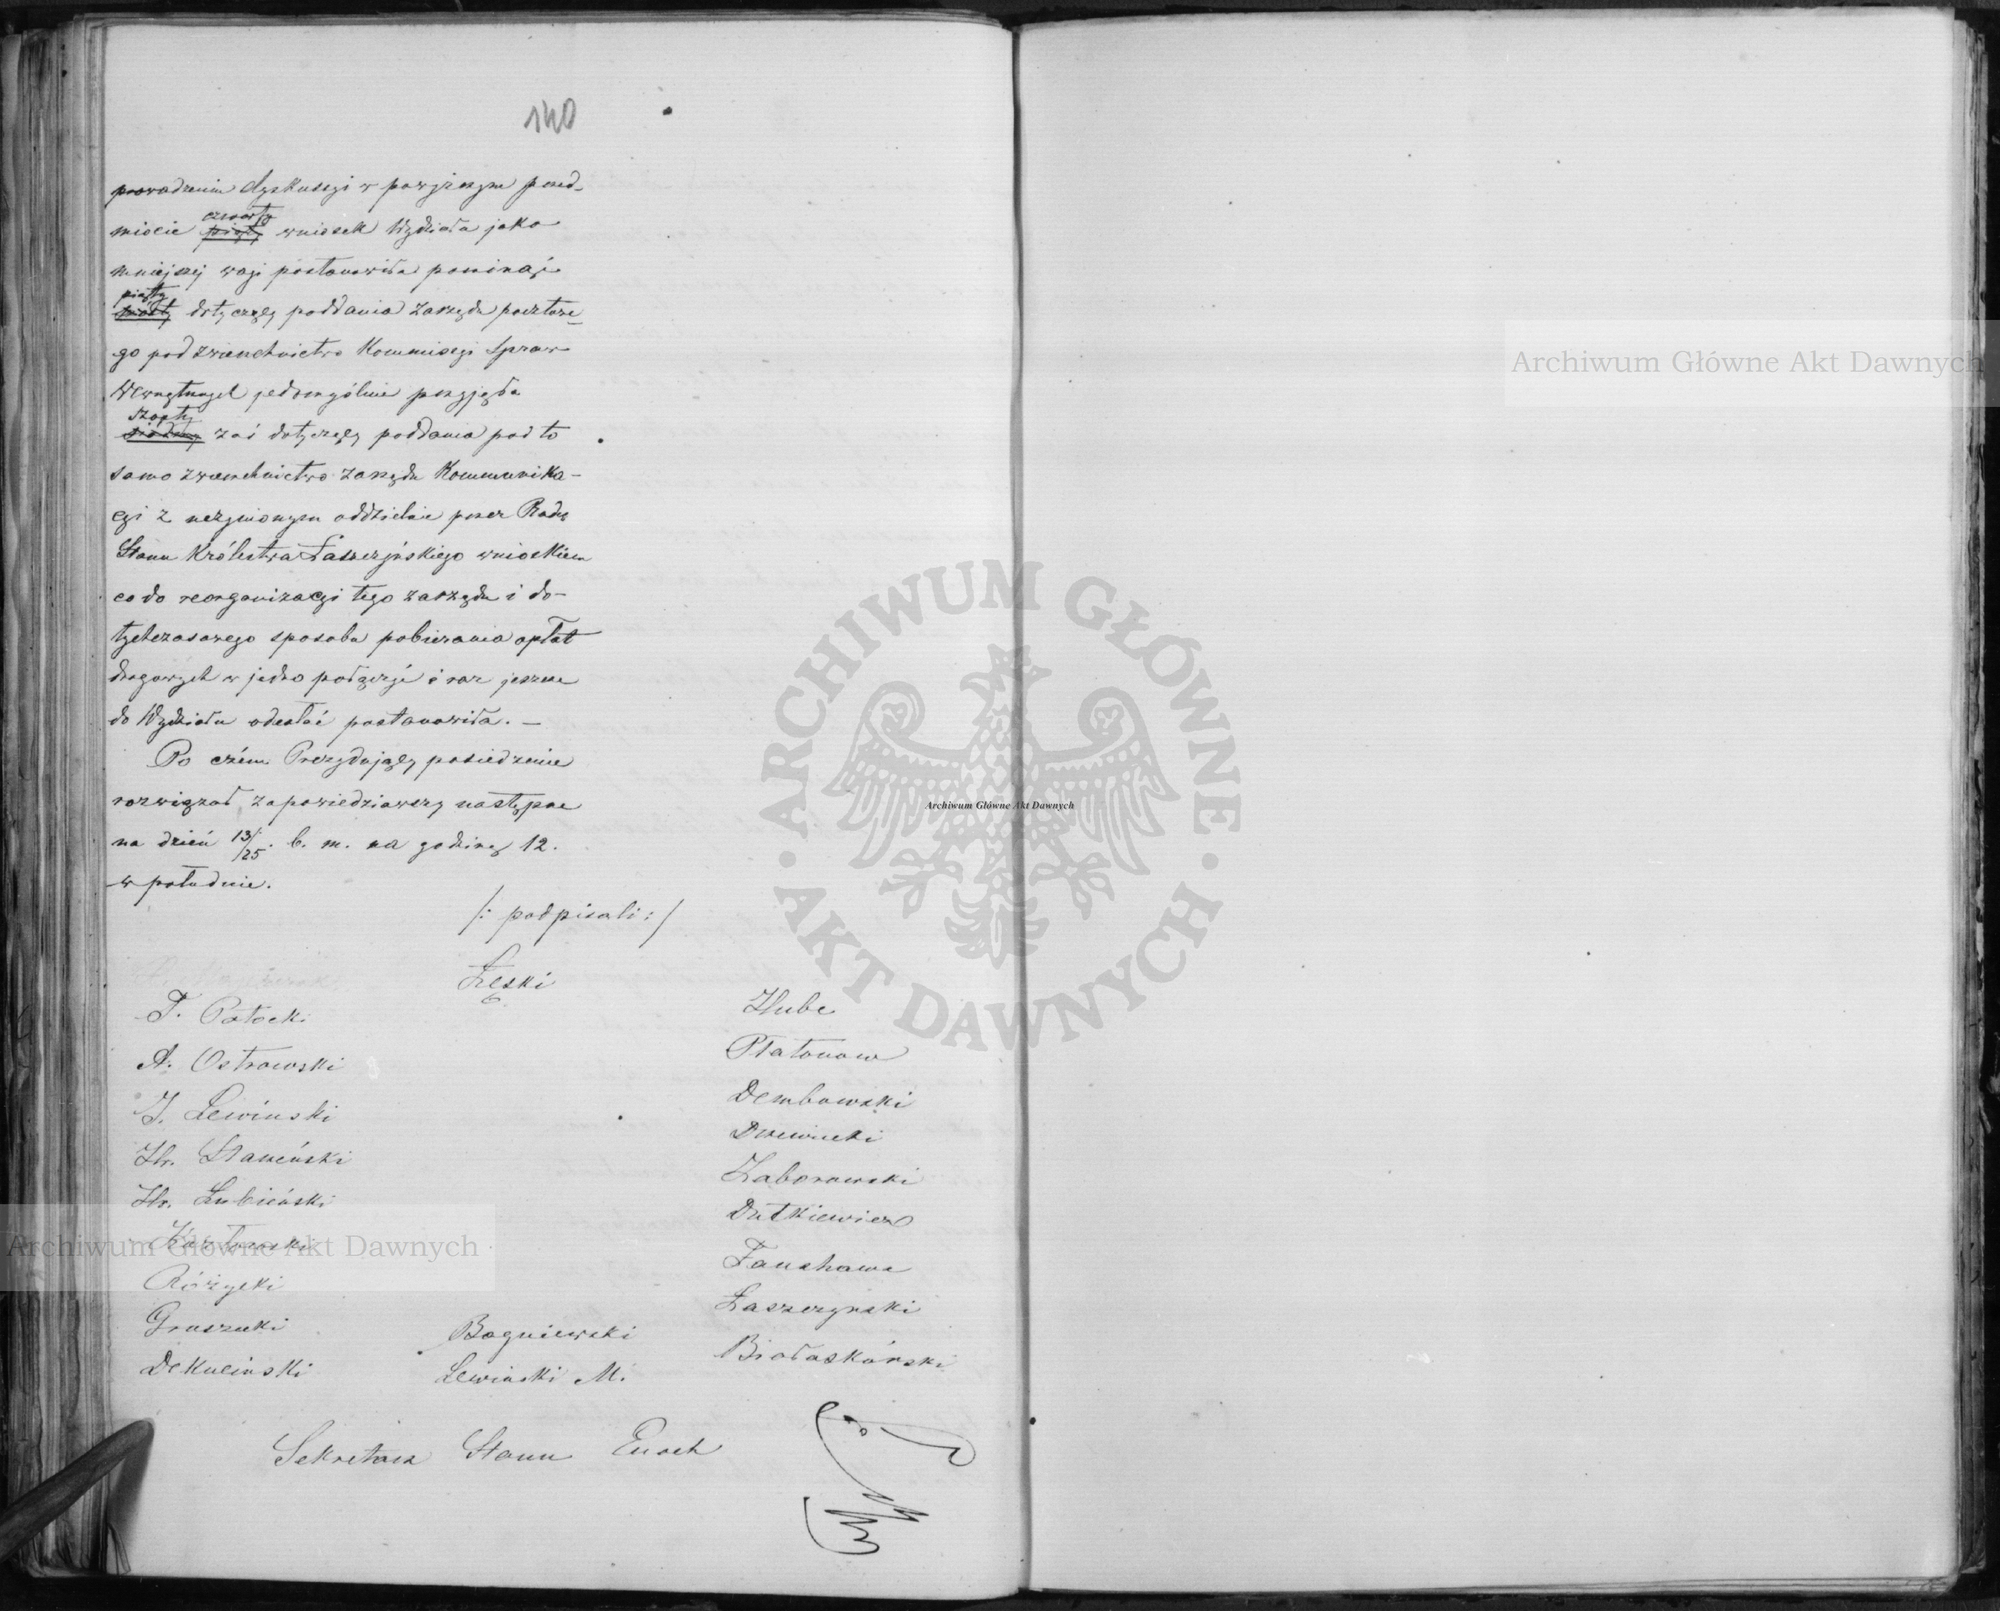 140
prowadzeniu dyskussyi w powyższym przed-
miocie czwarty piąty wniosek Wydziału jako
mniejszej wagi postanowiła pominąć
piąty szósty dotyczący poddania Zarządu pocztowe-
go pod zwierzchnictwo Kommissyi Spraw
Wewnętrznych jednomyślnie przyjęła
szósty siódmy zaś dotyczący poddania pod to
samo zwierzchnictwo zarządu Kommunika-
cyi z uczynionym oddzielnie przez Radcę
Stanu Królestwa Łaszczyńskiego wnioskiem
co do reorganizacyi tego zarządu i do-
tychczasowego sposobu pobierania opłat
drogowych w jedno połączyć i raz jeszcze
do Wydziału odesłać postanowiła. —
Po czém Prezydujący posiedzenie
rozwiązał zapowiedziawszy następne
na dzień 13/25. b. m. na godzinę 12.
w południe.
/: podpisali :/
Łęski
T. Potocki
A. Ostrowski
J. Lewiński
Hr. Łubieński
Różycki
Gruszecki
Dekuciński
Hube
Płatonow
Dembowski
Drzewiecki
Zaborowski
Dutkiewicz
Fanshawe
Łaszczyński
Białoskórski
Bogniewski
Lewiński M.
Sekretarz Stanu Enoch
Archiwum Główne Akt Dawnych
Archiwum Główne Akt Dawnych
Archiwum Główne Akt Dawnych
ARCHIWUM GŁÓWNE · AKT DAWNYCH ·